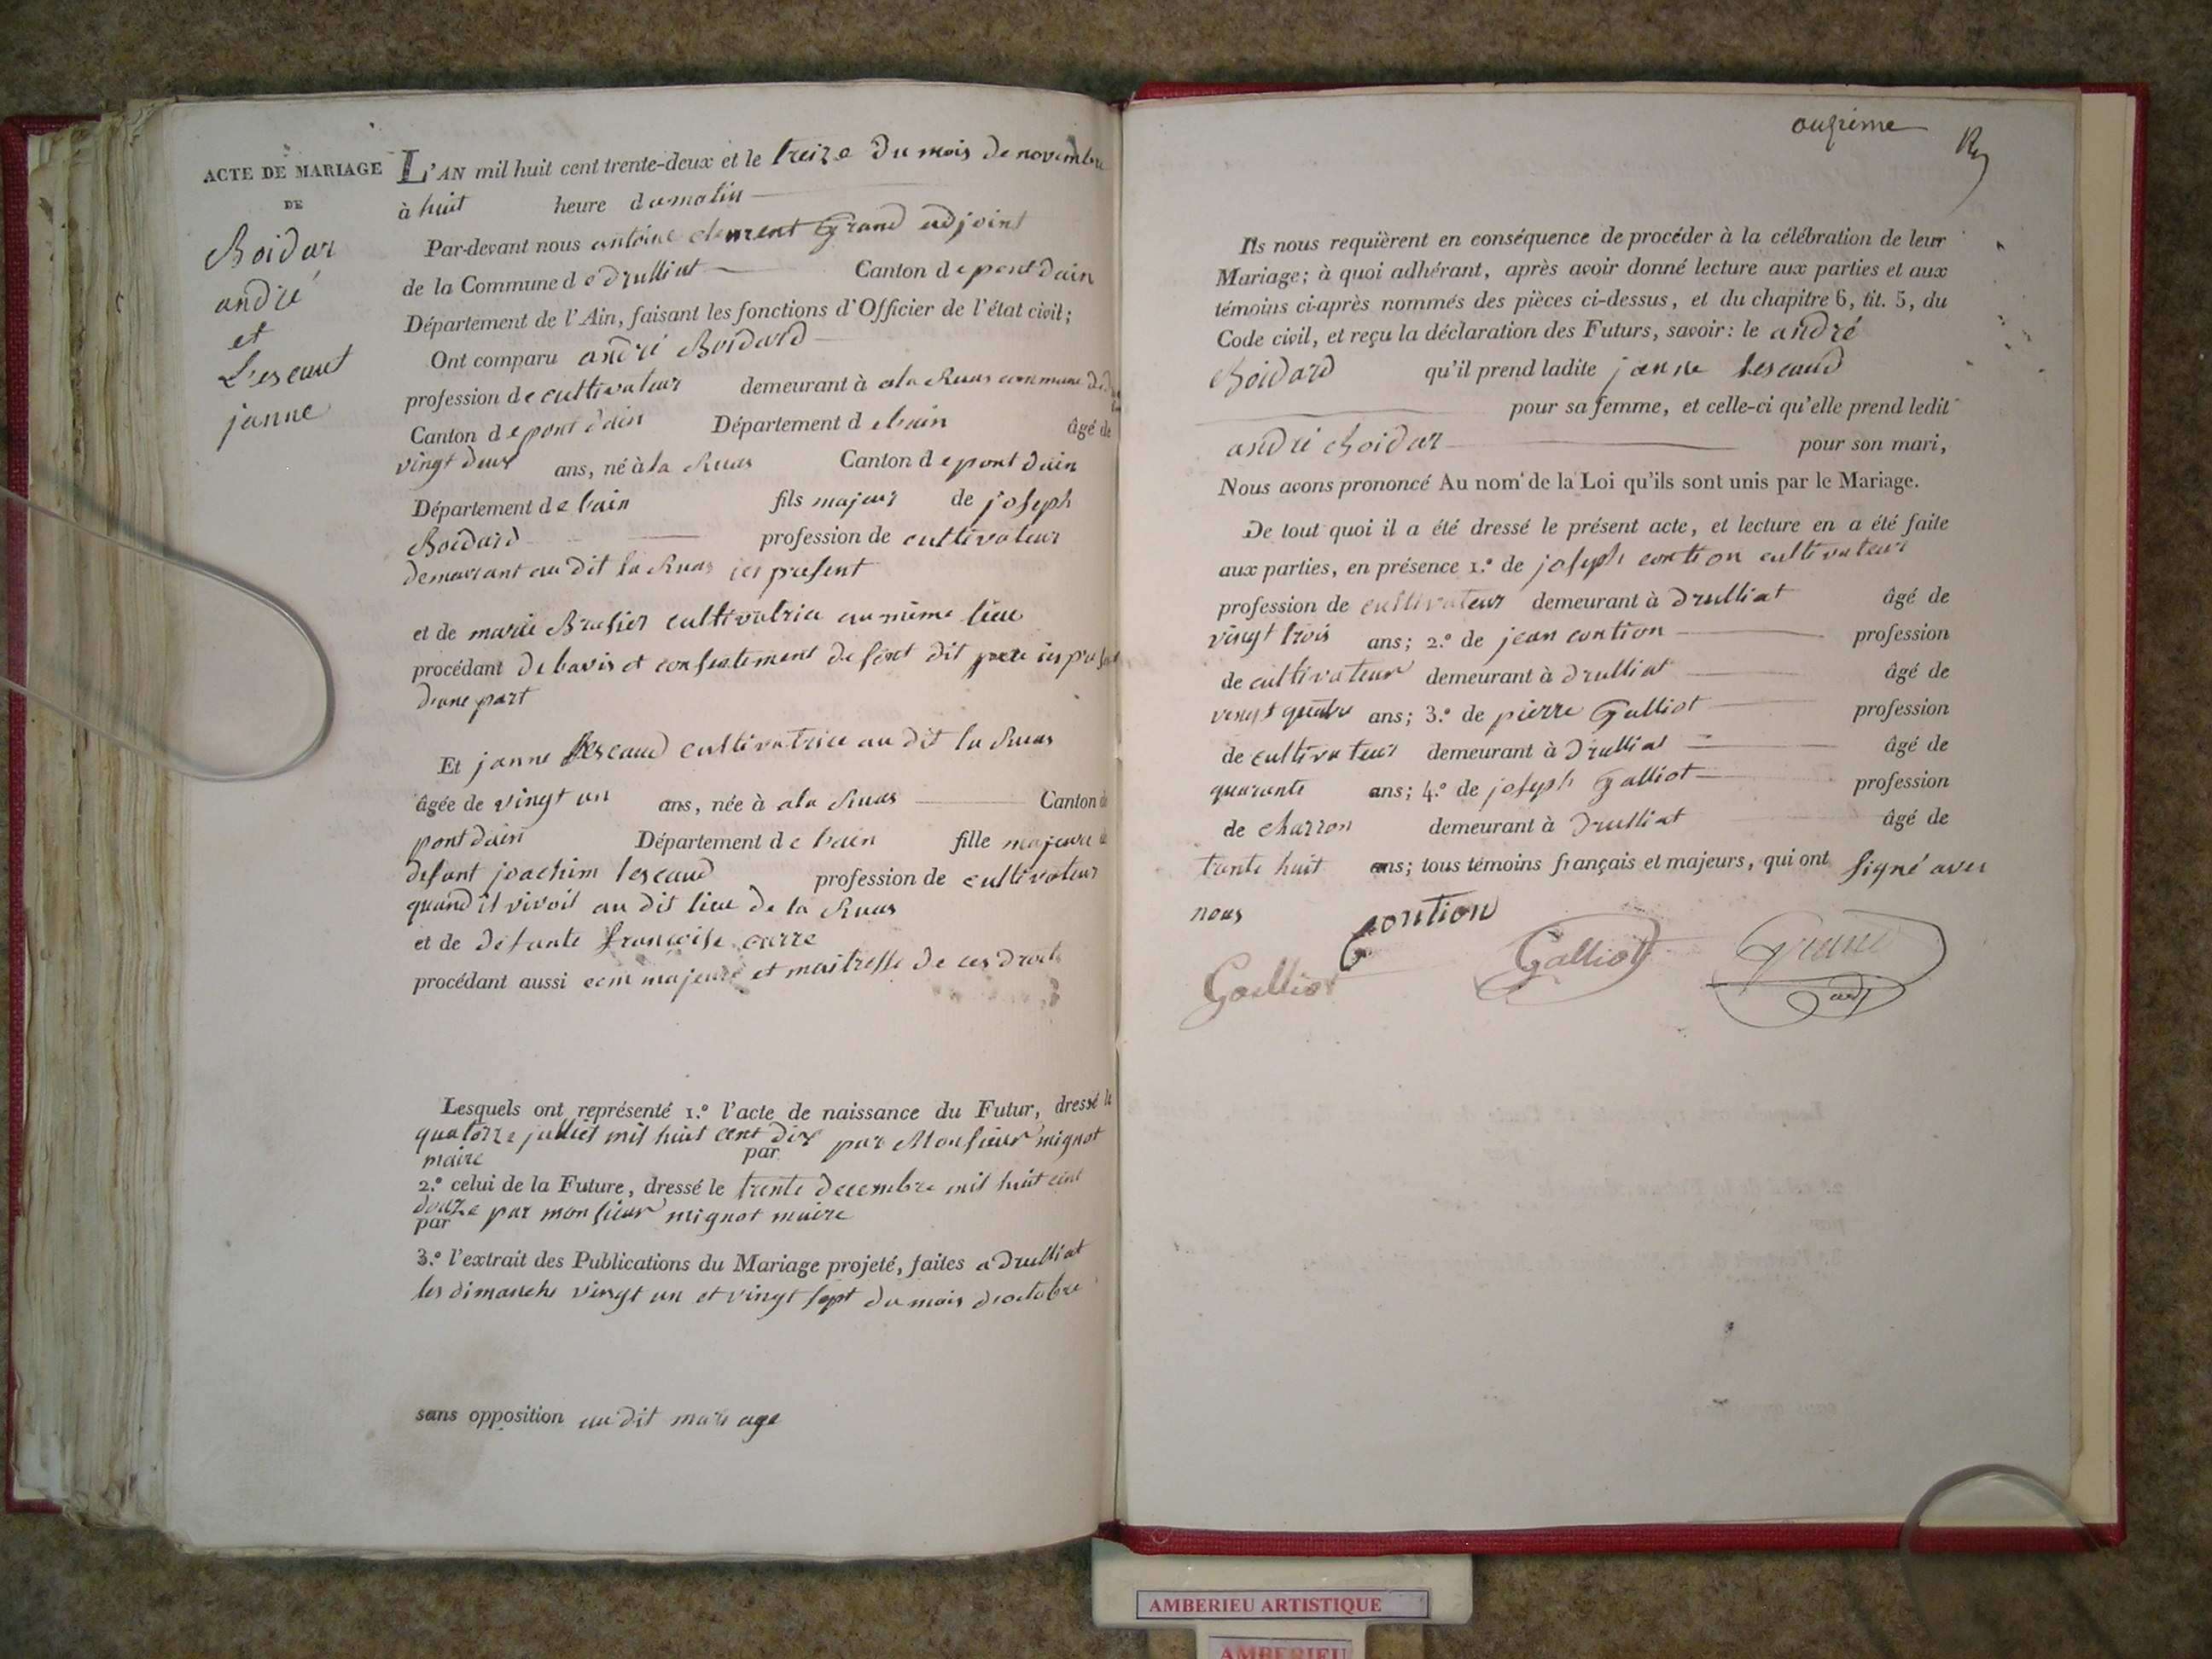 ACTE DE MARIAGE
DE
Boidar
andré
et
Lescaut
janne
L'AN mil huit cent trente-deux et le treize du mois de novembre
à huit heure du matin
Par-devant nous antoine clement Grand adjoint
de la Commune de druilliat Canton de pont dain
Département de l'Ain, faisant les fonctions d'Officier de l'état civil;
Ont comparu andré Boidard
profession de cultivateur demeurant à ala Ruas commune de
Canton de pont dain Département de lain âgé de
vingt deux ans, né à la Ruas Canton de pont dain
Département de lain fils majeur de joseph
Boidard profession de cultivateur
demeurant au dit la Ruas ici present
et de marie Brasier cultivatrice au même lieu
procédant de lavis et consentement de sont dit pere ici present
dune part
Et janne Lescaud cultivatrice au dit la Ruas
âgée de vingt un ans, née à ala Ruas Canton de
pont dain Département de lain fille majeure de
defunt joachim lescaud profession de cultivateur
quand il vivoit au dit lieu de la Ruas
et de defunte françoise
procédant aussi com majeure et maitresse de ces droits
Lesquels ont représenté 1.º l'acte de naissance du Futur, dressé le
quatorze julliet mil huit cent dix par Monsieur mignot
maire par
2.º celui de la Future, dressé le trente decembre mil huit cent
douze par monsieur mignot maire
par
3.º l'extrait des Publications du Mariage projeté, faites a Drulliat
les dimanche vingt un et vingt sept du mois doctobre
sans opposition au dit mariage
onzième
Ils nous requièrent en conséquence de procéder à la célébration de leur
Mariage; à quoi adhérant, après avoir donné lecture aux parties et aux
témoins ci-après nommés des pièces ci-dessus, et du chapitre 6, tit. 5, du
Code civil, et reçu la déclaration des Futurs, savoir: le andré
Boidard qu'il prend ladite janne lescaud
pour sa femme, et celle-ci qu'elle prend ledit
andré Boidar pour son mari,
Nous avons prononcé Au nom de la Loi qu'ils sont unis par le Mariage.
De tout quoi il a été dressé le présent acte, et lecture en a été faite
aux parties, en présence 1.º de joseph contion cultivateur
profession de cultivateur demeurant à drulliat âgé de
vingt trois ans; 2.º de jean contion profession
de cultivateur demeurant à drulliat âgé de
vingt quatre ans; 3.º de pierre Galliot profession
de cultivateur demeurant à drulliat âgé de
quarante ans; 4.º de joseph galliot profession
de charron demeurant à drulliat âgé de
trente huit ans; tous témoins français et majeurs, qui ont signé avec
nous contion
Galliot Galliot Grand
adj
AMBERIEU ARTISTIQUE
AMBERIEU